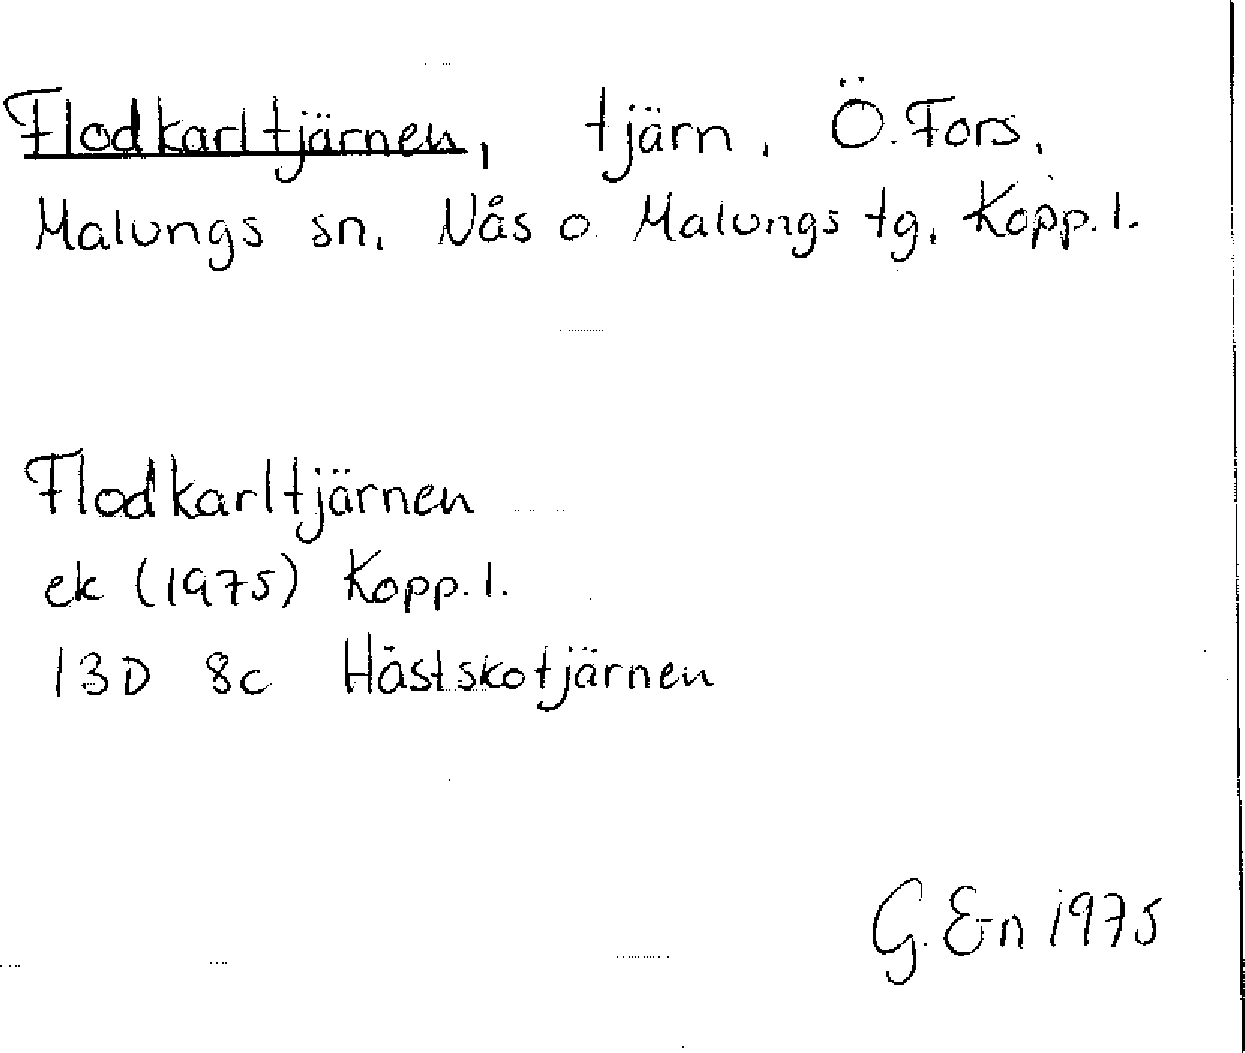 Flodkarltjärnen, tjärn, Ö. Fors,
Malungs sn, Nås o. Malungs tg, Kopp. l.
Flodkarltjärnen
ek (1975) Kopp. l.
13D 8c Hästskotjärnen
G. E-n 1975